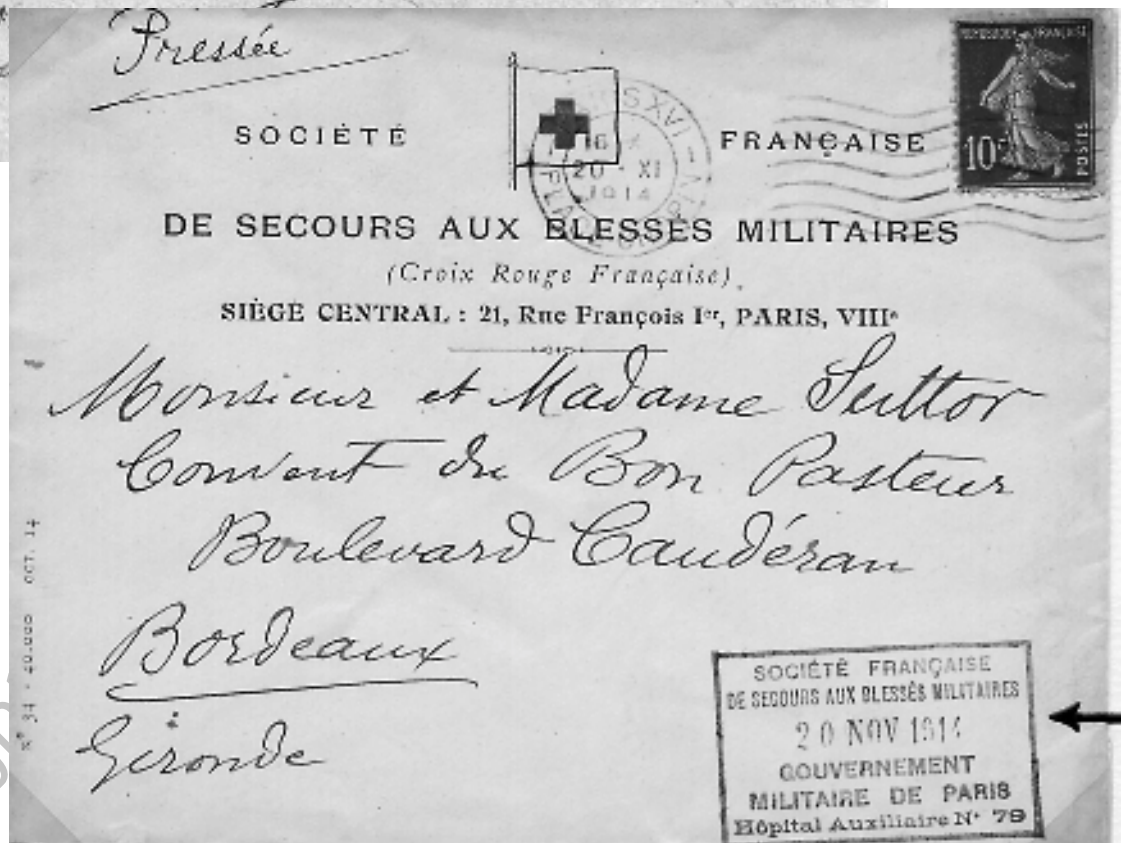 Pressée
RÉPUBLIQUE FRANÇAISE
10c
POSTES
SOCIÉTÉ FRANÇAISE
PARIS XVI
20 - XI
1914
DE SECOURS AUX BLESSÉS MILITAIRES
(Croix Rouge Française).
SIÈGE CENTRAL : 21, Rue François Ier, PARIS, VIIIe
Monsieur et Madame Suttor
Convent du Bon Pasteur
Boulevard Caudéran
Bordeaux
Gironde
N° 34 - 20.000 OCT. 14
SOCIÉTÉ FRANÇAISE
DE SECOURS AUX BLESSÉS MILITAIRES
20 NOV 1914
GOUVERNEMENT
MILITAIRE DE PARIS
Hôpital Auxiliaire N° 79